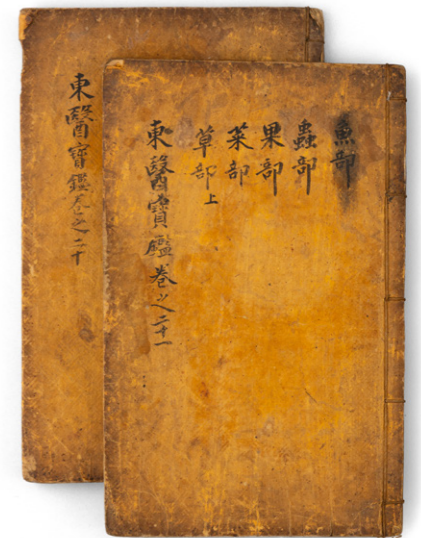 東醫寶鑑卷之二十
魚部
蟲部
果部
菜部
草部上
東醫寶鑑卷之二十一